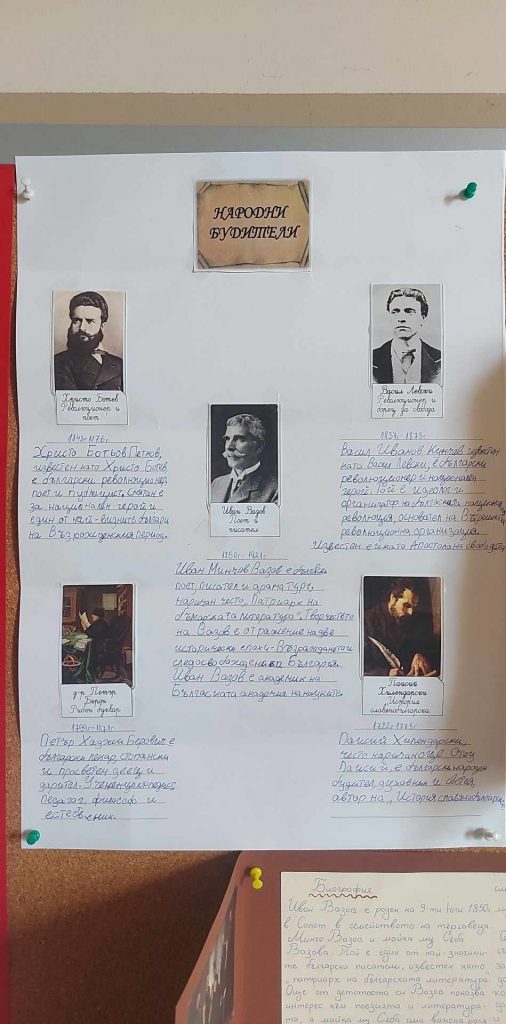 НАРОДНИ
БУДИТЕЛИ
Христо Ботев
Революционер и
поет
Христо Ботьов Петков,
известен като Христо Ботев
е български революционер,
поет и публицист, считан е
за национален герой и
един от най-видните българи
на Възрожденския период.
Васил Левски
Революционер и
борец за свобода
1837г-1873г.
Васил Иванов Кунчев известен
като Васил Левски, е български
революционер и национален
герой. Той е идеолог и
организатор на българската национална
революция, основател на Вътрешната
революционна организация.
Известен е и като Апостола на свободата
Иван Вазов
Поет и
писател
1850г-1921г.
Иван Минчов Вазов е български
поет, писател и драматург,
наричан често "Патриарх на
българската литература". Творчеството
на Вазов е отражение на две
исторически епохи - Възраждането и
следосвобожденска България.
Иван Вазов е академик на
Българската академия на науките
д-р Петър
Берон
Рибен буквар
Петър Хаджи Берович е
български лекар, стопански
и просветен деец и
дарител. Учен енциклопедист,
педагог, философ и
естественик.
Паисий
Хилендарски
"История
славянобългарска
1722-1773г.
Паисий Хилендарски,
често наричан още Отец
Паисий е български народен
будител, духовник и светия,
автор на "История славянобългарска
Биография
Иван Вазов е роден на 9-ти Юли 1850г
в Сопот в семейството на търговеца
Минчо Вазов и майка му Съба
Вазова. Той е един от най-значими-
те български писатели, известен като
"патриарх на българската литература.
Още от детството си Вазов показва
интерес към поезията и литература-
та, а майка му Съба има важна роля